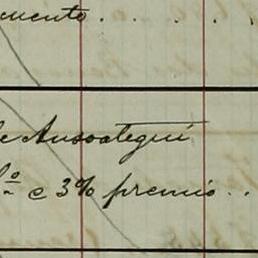 cuento. . . . .
de Ausoategui
lo c 3% premio. .